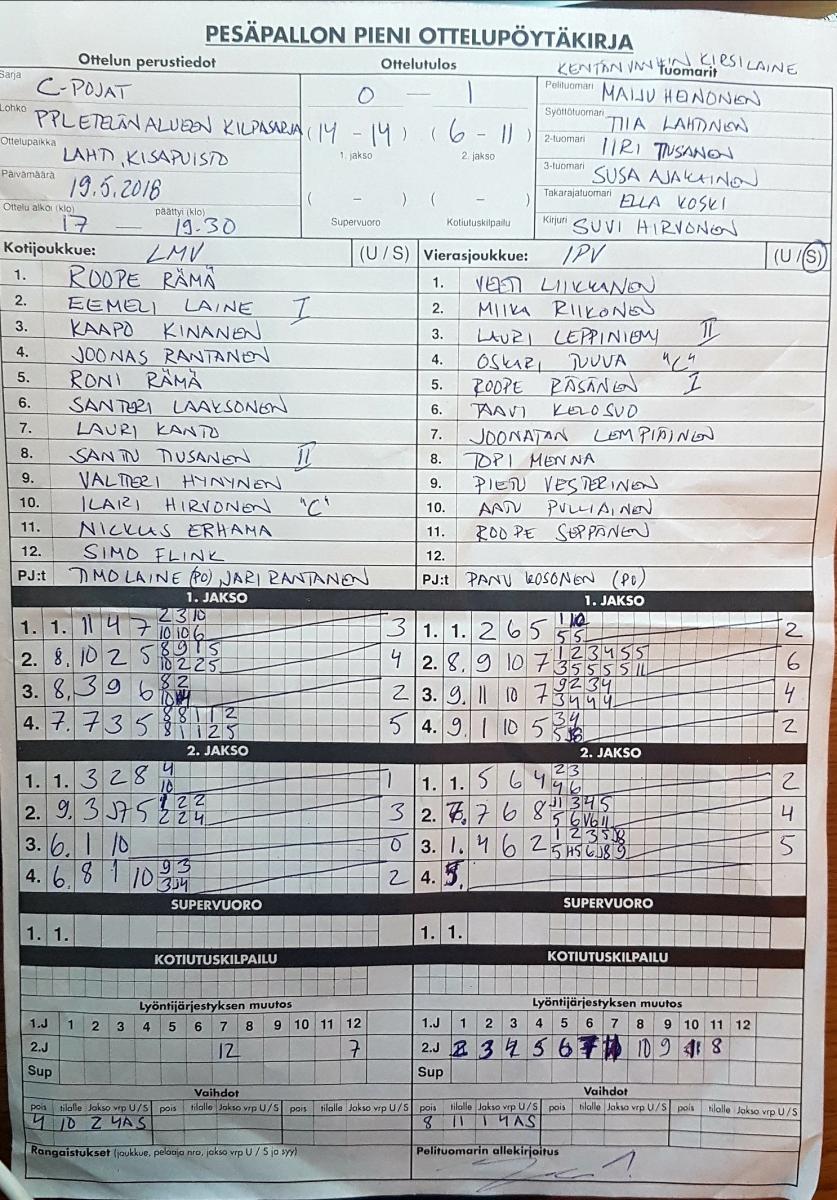 PESÄPALLON PIENI OTTELUPÖYTÄKIRJA
Ottelun perustiedot
Ottelutulos
Tuomarit
Sarja C-POJAT
Lohko PPL ETELÄN ALUEEN KILPASARJA
Ottelupaikka LAHTI, KISAPUISTO
Päivämäärä 19.5.2018
Ottelu alkoi (klo) 17 — päättyi (klo) 19.30
0 — 1
(14 - 14) (6 - 11)
1. jakso 2. jakso
( - ) ( - )
Supervuoro Kotiutuskilpailu
KIRSI LAINE
Pelituomari MAIJU HEINONEN
Syöttötuomari TIIA LAHTINEN
2-tuomari IIRI TIUSANEN
3-tuomari SUSA
Takarajatuomari ELLA KOSKI
Kirjuri SUVI HIRVONEN
Kotijoukkue: LMV (U / S)
1. ROOPE RÄMÄ
2. EEMELI LAINE I
3. KAAPO KINANEN
4. JOONAS RANTANEN
5. RONI RÄMÄ
6. SANTERI LAAKSONEN
7. LAURI KANTO
8. SANTTU TIUSANEN II
9. VALTTERI HYNYNEN
10. ILARI HIRVONEN "C"
11. NICKLAS ERHAMA
12. SIMO FLINK
PJ:t TIMO LAINE (PO) JARI RANTANEN
Vierasjoukkue: IPV (U / S)
1. VEETI LIIKKANEN
2. MIIKA RIIKONEN
3. LAURI LEPPINIEMI II
4. OSKARI "C"
5. ROOPE RÄSÄNEN I
6. TAAVI KELOSUO
7. JOONATAN LEMPIÄINEN
8. TOPI MENNA
9. PIETU VESTERINEN
10. AATU PULLIAINEN
11. ROOPE SEPPÄNEN
12.
PJ:t PANU KOSONEN (PO)
1. JAKSO
1. 1. 11 4 7 2 3 10 3
10 10 6
2. 8. 10 2 5 8 9 1 5 4
10 2 2 5
3. 8. 3 9 6 8 2 2
4. 7. 7 3 5 8 8 1 1 2 5
8 1 1 2 5
1. JAKSO
1. 1. 2 6 5 1 10 2
5 5
2. 8. 9 10 7 1 2 3 4 5 5 6
3 5 5 5 5 11
3. 9. 11 10 7 9 2 3 4 4
3 4 4 4
4. 9. 1 10 5 3 4 2
2. JAKSO
1. 1. 3 2 8 4 1
10
2. 9. 3 J7 5 2 2 3
2 2 4
3. 6. 1 10 0
4. 6. 8 1 10 9 3 2
3 J4
2. JAKSO
1. 1. 5 6 4 2 3 2
4 6
2. 7 6 8 J11 3 4 5 4
3. 1. 4 6 2 1 2 3 5 J8 5
4.
SUPERVUORO
1. 1.
SUPERVUORO
1. 1.
KOTIUTUSKILPAILU
KOTIUTUSKILPAILU
Lyöntijärjestyksen muutos
1.J 1 2 3 4 5 6 7 8 9 10 11 12
2.J 12 7
Sup
Lyöntijärjestyksen muutos
1.J 1 2 3 4 5 6 7 8 9 10 11 12
2.J 2 3 4 5 6 7 10 9 8
Sup
Vaihdot
pois tilalle Jakso vrp U / S pois tilalle Jakso vrp U / S pois tilalle Jakso vrp U / S
4 10 2 4AS
Vaihdot
pois tilalle Jakso vrp U / S pois tilalle Jakso vrp U / S pois tilalle Jakso vrp U / S
8 11 1 4AS
Rangaistukset (joukkue, pelaaja nro, jakso vrp U / S ja syy)
Pelituomarin allekirjoitus